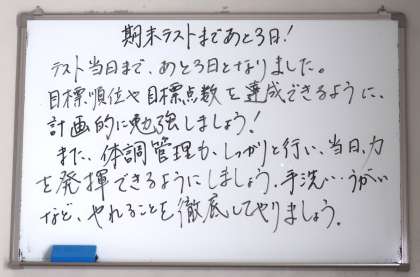 期末テストまであと3日!
テスト当日まで、あと3日となりました。
目標順位や目標点数を達成できるように、
計画的に勉強しましょう!
また、体調管理も、しっかりと行い、当日、力
を発揮できるようにしましょう。手洗い・うがい
など、やれることを徹底してやりましょう。